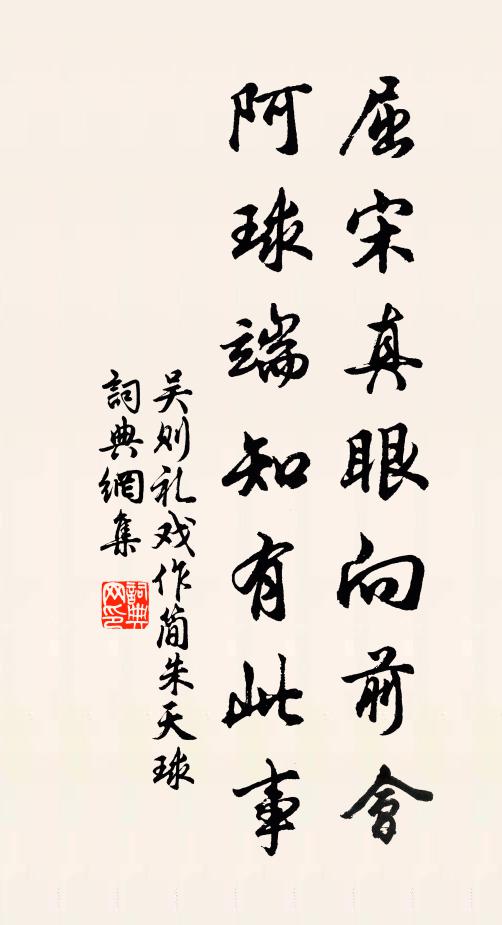 屈宋真眼向前會
阿球端知有此事
吴则礼戏作简朱天球
詞典網集
詞典网印